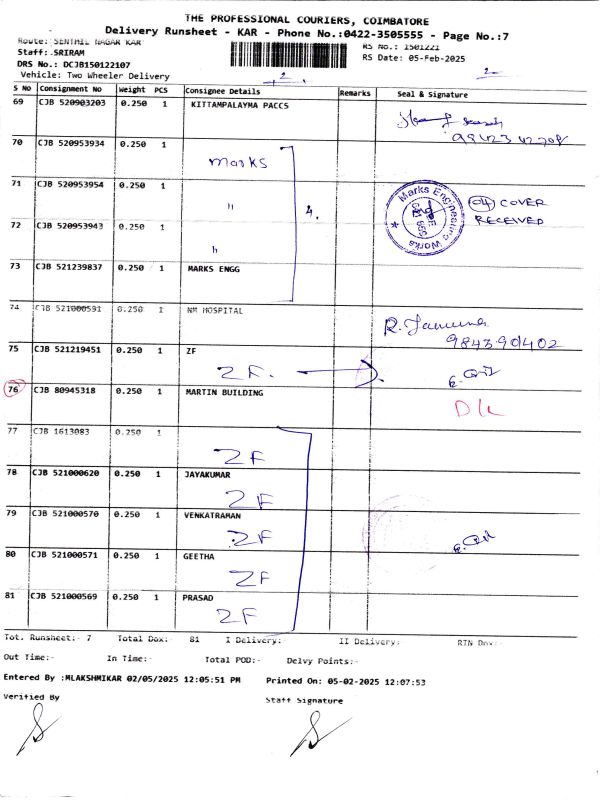 THE PROFESSIONAL COURIERS, COIMBATORE
Delivery Runsheet - KAR - Phone No.:0422-3505555 - Page No.:7
Route: SENTHIL NAGAR KAR
RS No.: 1501221
Staff: SRIRAM
RS Date: 05-Feb-2025
DRS No.: DCJB150122107
Vehicle: Two Wheeler Delivery
2
2
S No Consignment No Weight PCS Consignee Details Remarks Seal & Signature
69 CJB 520903203 0.250 1 KITTAMPALAYMA PACCS
70 CJB 520953934 0.250 1
marks
71 CJB 520953954 0.250 1
"
4.
Marks Engineering Works
04 COVER
RECEIVED
72 CJB 520953943 0.250 1
"
73 CJB 521239837 0.250 1 MARKS ENGG
74 CJB 521000591 0.250 1 NM HOSPITAL
75 CJB 521219451 0.250 1 ZF
ZF.
76 CJB 80945318 0.250 1 MARTIN BUILDING
D/L
77 CJB 1613083 0.250 1
ZF
78 CJB 521000620 0.250 1 JAYAKUMAR
ZF
79 CJB 521000570 0.250 1 VENKATRAMAN
ZF
80 CJB 521000571 0.250 1 GEETHA
ZF
81 CJB 521000569 0.250 1 PRASAD
ZF
Tot. Runsheet:- 7 Total Dox:- 81 I Delivery:- II Delivery: RTN Dox:-
Out Time:- In Time:- Total POD:- Delvy Points:-
Entered By :MLAKSHMIKAR 02/05/2025 12:05:51 PM Printed On: 05-02-2025 12:07:53
Verified By Staff Signature